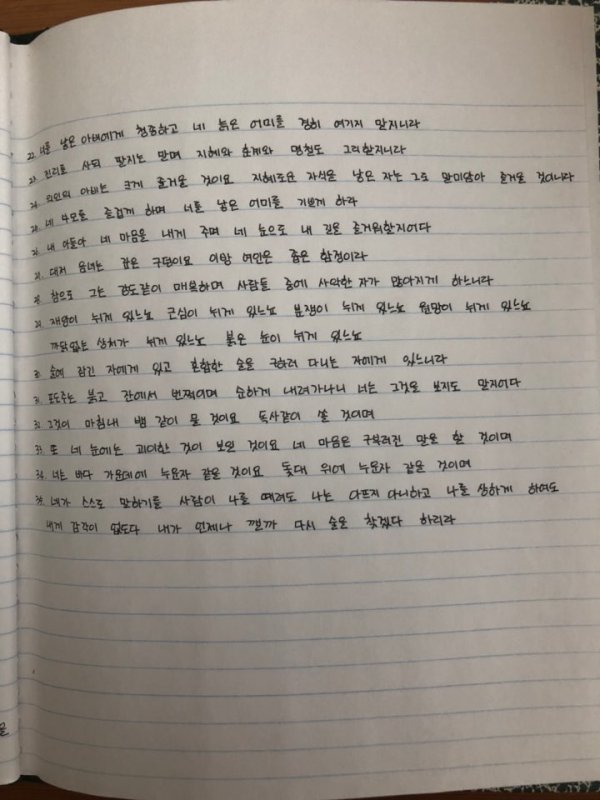 22. 너를 낳은 아버에게 청종하고 네 늙은 어미를 경히 여기지 말지니라
23. 진리를 사되 팔지는 말며 지혜와 훈계와 명철도 그리할지니라
24. 의인의 아비는 크게 즐거울 것이요 지혜로운 자식을 낳은 자는 그로 말미암아 즐거울 것이니라
25. 네 부모를 즐겁게 하며 너를 낳은 어미를 기쁘게 하라
26. 내 아들아 네 마음을 내게 주며 네 눈으로 내 길을 즐거워할지어다
27. 대저 음녀는 깊은 구덩이요 이방 여인은 좁은 함정이라
28. 참으로 그는 강도같이 매복하며 사람들 중에 사악한 자가 많아지게 하느니라
29. 재앙이 뉘게 있느뇨 근심이 뉘게 있느뇨 분쟁이 뉘게 있느뇨 원망이 뉘게 있느뇨
까닭없는 상처가 뉘게 있느뇨 붉은 눈이 뉘게 있느뇨
30. 술에 잠긴 자에게 있고 혼합한 술을 구하러 다니는 자에게 있느니라
31. 포도주는 붉고 잔에서 번쩍이며 순하게 내려가나니 너는 그것을 보지도 말지어다
32. 그것이 마침내 뱀 같이 물 것이요 독사같이 쏠 것이며
33. 또 네 눈에는 괴이한 것이 보일 것이요 네 마음은 구부러진 말을 할 것이며
34. 너는 바다 가운데에 누운자 같을 것이요 돛대 위에 누운자 같을 것이며
35. 네가 스스로 말하기를 사람이 나를 때려도 나는 아프지 아니하고 나를 상하게 하여도
내게 감각이 없도다 내가 언제나 깰까 다시 술을 찾겠다 하리라